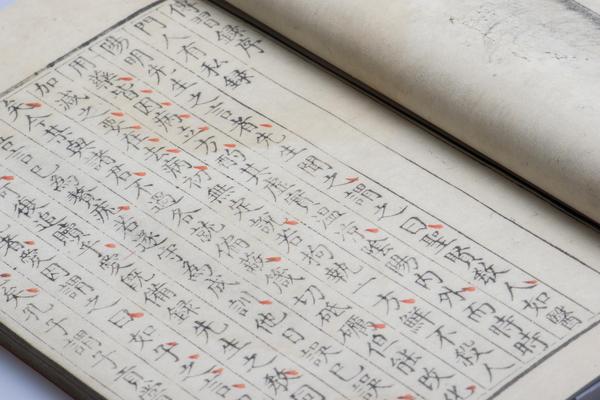 傳習録序
門人有私録
陽明先生之言者先生聞之謂之曰聖賢教人如醫
用藥皆因病立方酌其虛實温凉陰陽内外而時時
加減之要在去病初無定說若拘執一方鮮不殺人
矣今某與諸君不過各就偏蔽箴切砥礪但能改化
吾言已為贅疣若遂守為成訓他日誤已誤
可復追贖乎愛既備録先生之教同
者愛因謂之曰如子之言
矣孔子謂子貢嘗